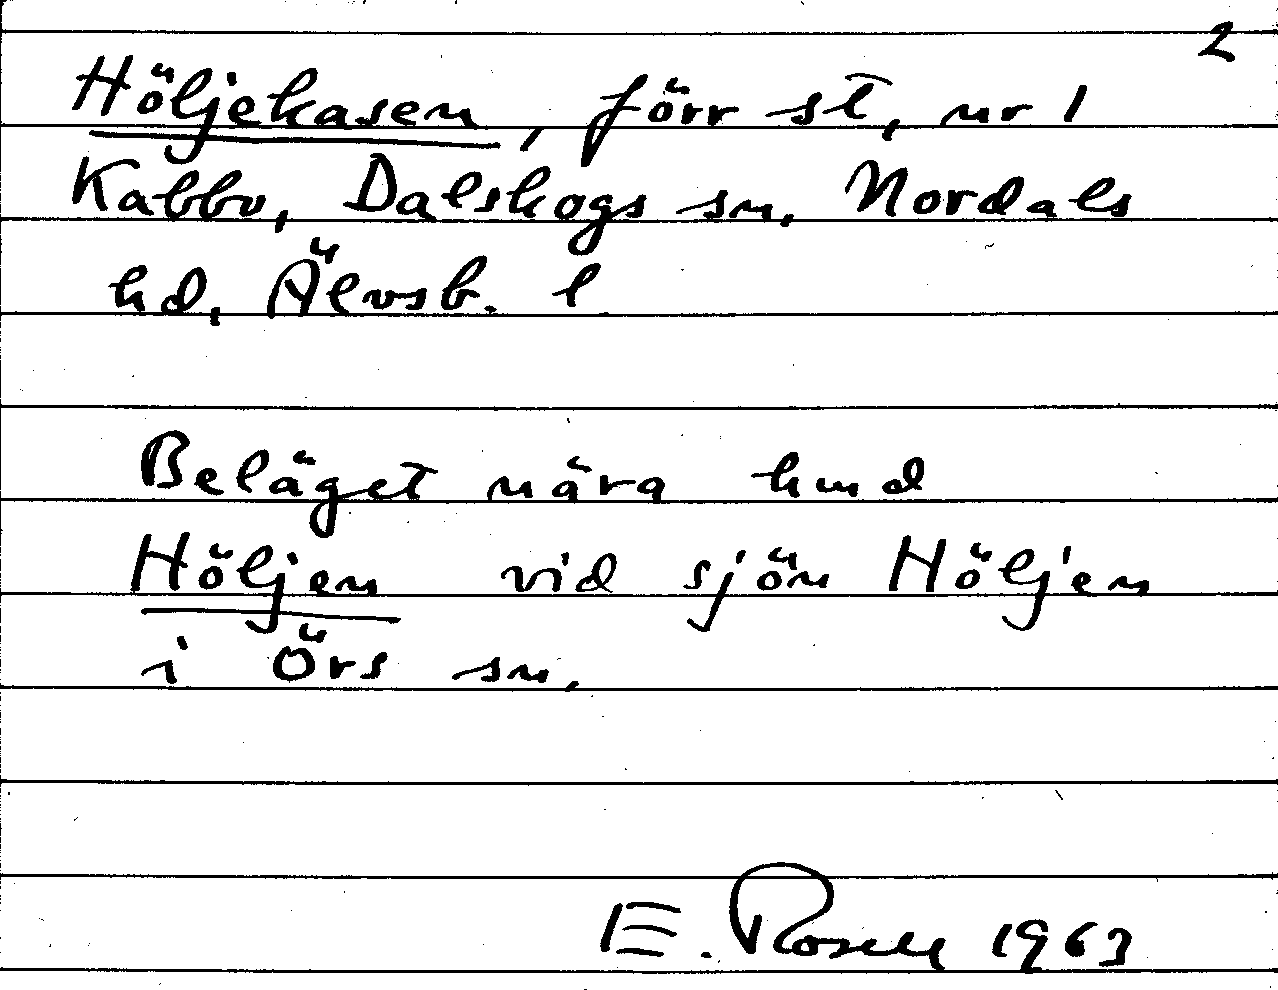 2
Höljekasen, förr st, nr 1
Kabbo, Dalskogs sn, Nordals
hd, Älvsb. l
Beläget nära hmd
Höljen vid sjön Höljen
i Örs sn.
E. Rosell 1963